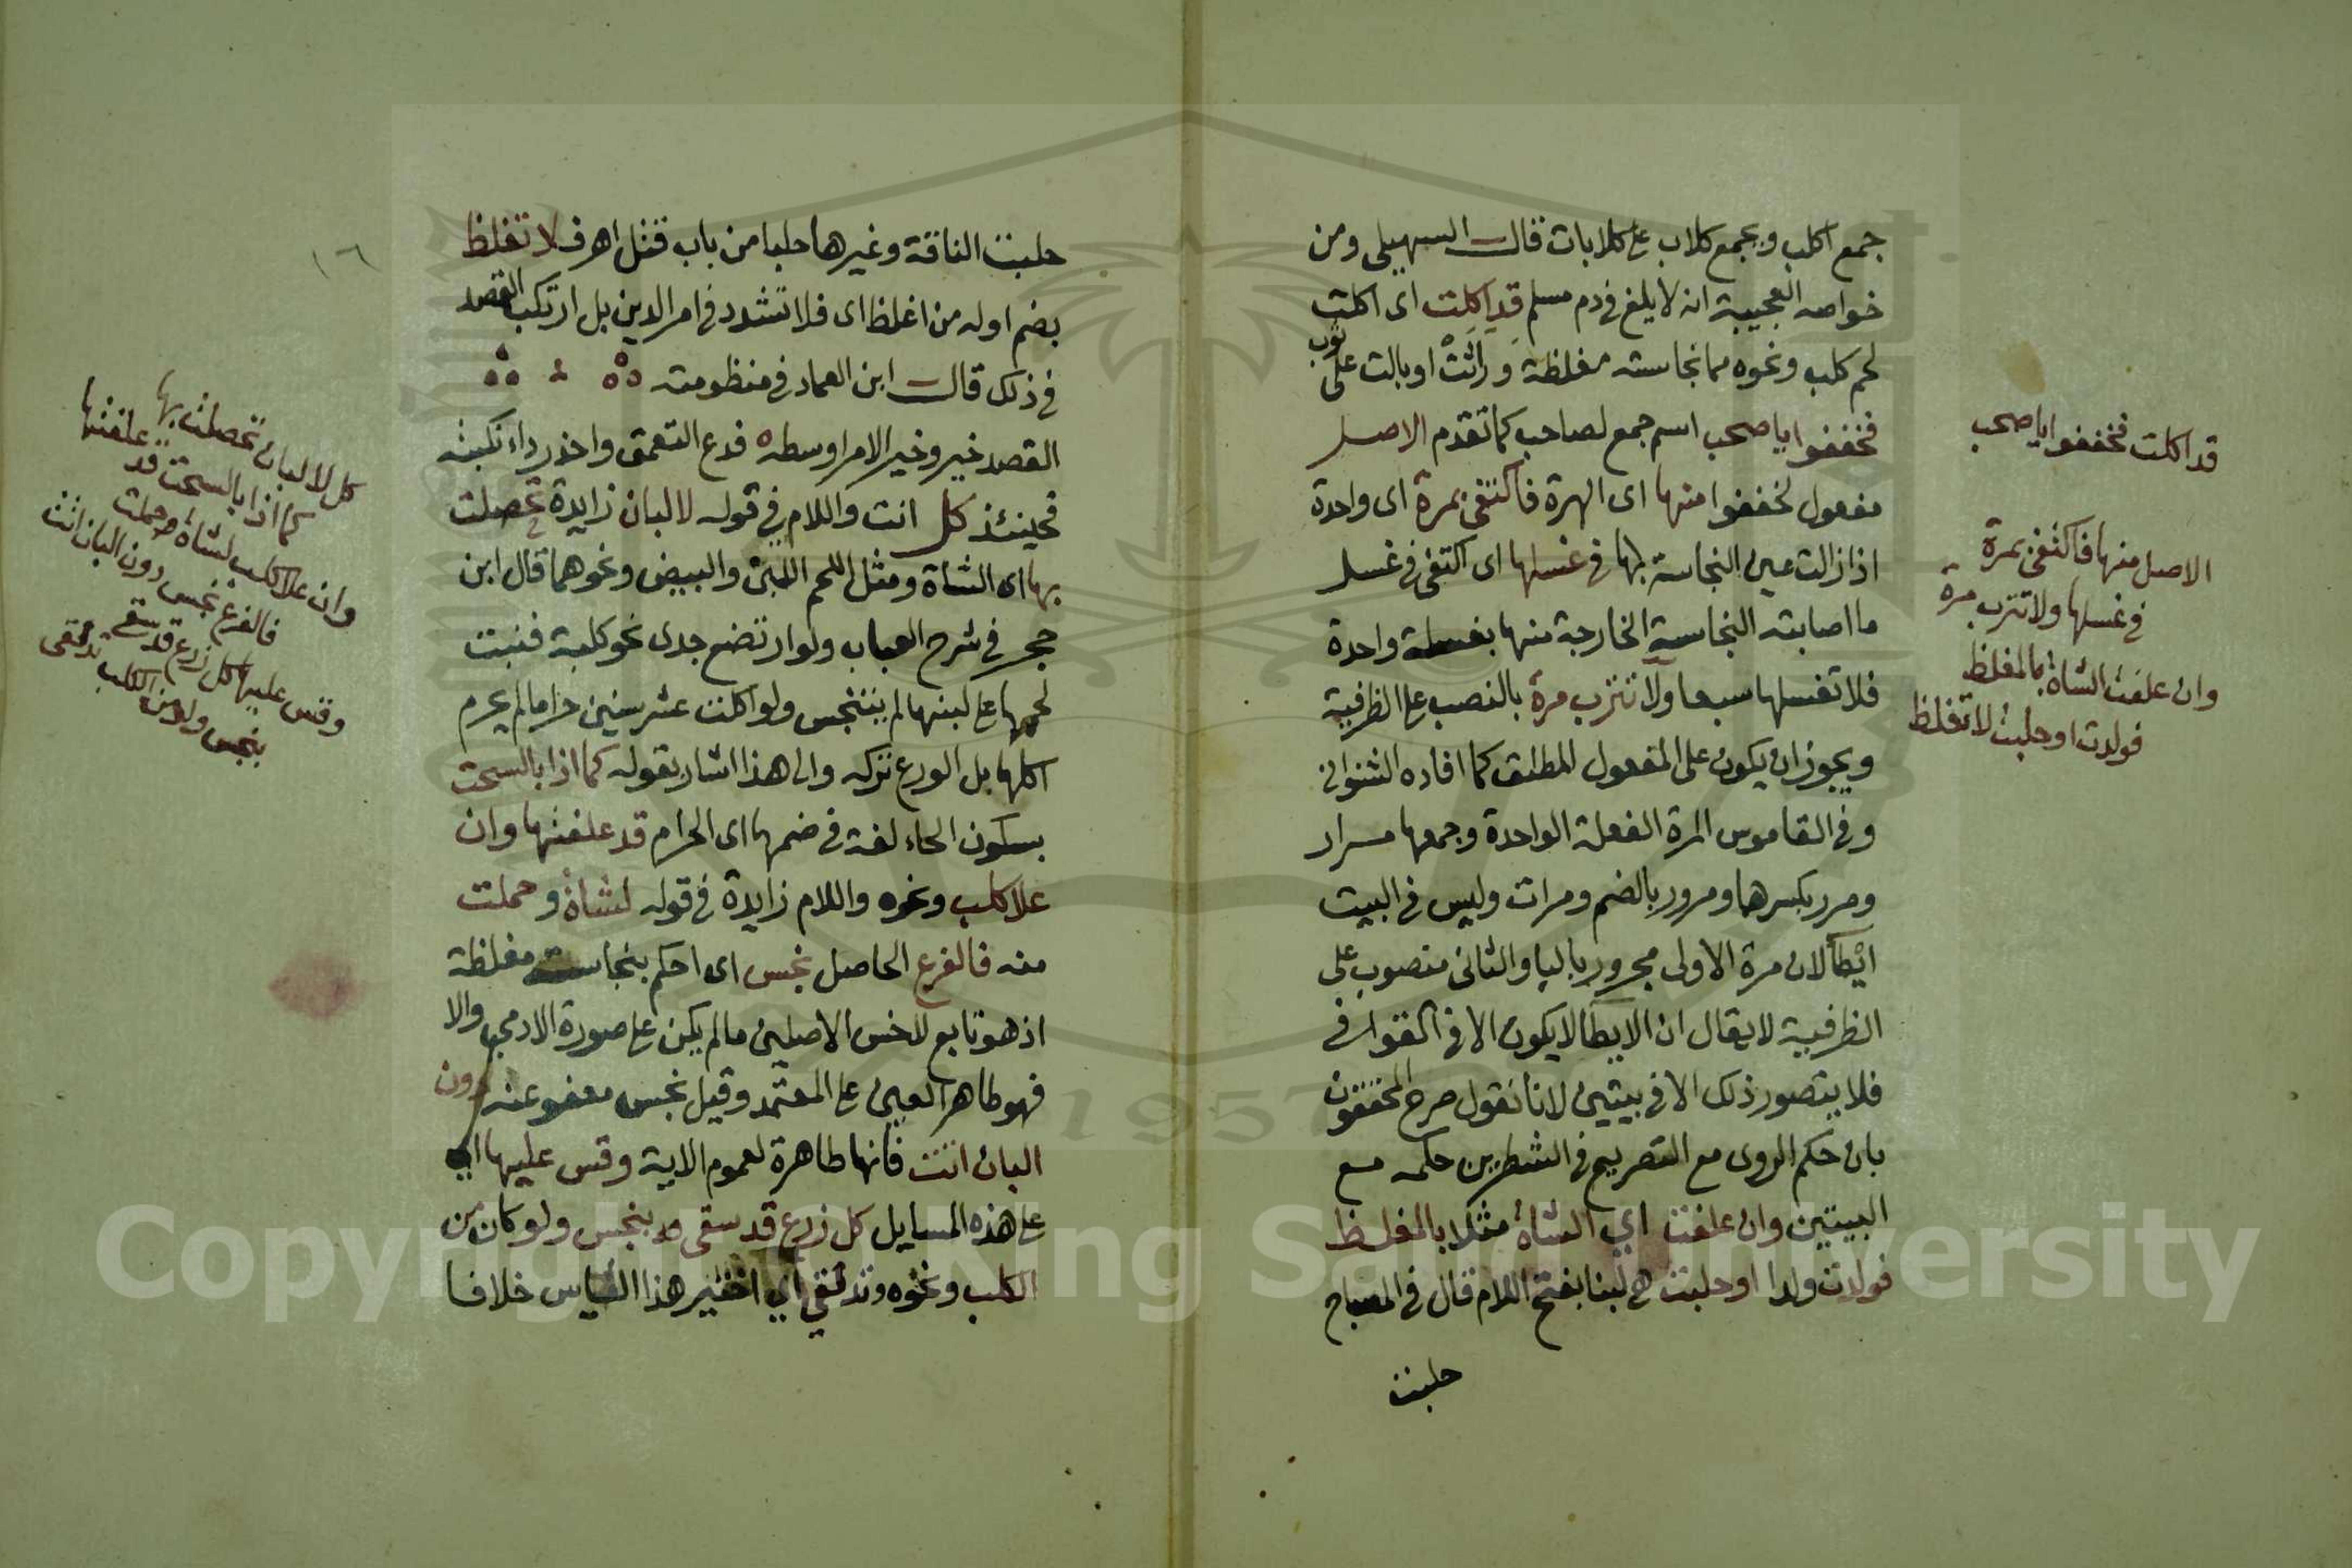 جمع اكلب ويجمع كلاب على كلابات قال السهيلي ومن
خواصه العجيبة انه لا يلغ في دم مسلم قد اكلت اى اكلت
لحم كلب ونحوه مما نجاسته مغلظة وراثت او بالت على ثوب
فخففوا يا صحب اسم جمع لصاحب كما تقدم الاصل
مفعول لخففوا منها اى الهرة فاكتفى بمرة اى واحدة
اذا زالت عين النجاسة بها في غسلها اى اكتفى في غسل
ما اصابته النجاسة الخارجة منها بغسلة واحدة
فلا تغسلها سبعا ولا تترب مرة بالنصب على الظرفية
ويجوز ان يكون على المفعول المطلق كما افاده الشنوانى
وفي القاموس المرة الفعلة الواحدة وجمعها مرار
ومرر بكسرهما ومرور بالضم ومرات وليس في البيت
ايطا لان مرة الاولى مجرور بالبا والثانى منصوب على
الظرفية لا يقال ان الايطا لا يكون الا في القوافى
فلا يتصور ذلك الا في بيتين لانا نقول صرح المحققون
بان حكم الروى مع التصريع في الشطرين حكمه مع
البيتين وان علفت اي الشاة مثلا بالمغلظ
فولدت ولدا او حلبت هي لبنا بفتح اللام قال في المصباح
حلبت
قد اكلت فخففوا ايا صحب
الاصل منها فاكتفى بمرة
في غسلها ولا تترب مرة
وان علفت الشاة بالمغلظ
فولدت او حلبت لا تغلظ
١٦
حلبت الناقة وغيرها حلبا من باب قتل اهرف لا تغلظ
بضم اوله من اغلظ اى فلا تشدد في امر الدين بل ارتكب القصد
في ذلك قال ابن العماد في منظومته
القصد خير وخير الامر اوسطه فدع التعمق واحذر داء نكبته
فحينئذ كل انت واللام في قوله لالبان زايدة تحصلت
بها اى الشاة ومثل اللحم اللبن والبيض ونحوهما قال ابن
حجر في شرح العباب ولو ارتضع جدى نحو كلبة فنبت
لحمها على لبنها لم يتنجس ولو اكلت عشر سنين حراما لم يحرم
اكلها بل الورع تركه والى هذا اشار بقوله كما اذا بالسحت
بسكون الحاء لغة في ضمها اى الحرام قد علفتها وان
علا كلب ونحوه واللام زايدة في قوله لشاة وحملت
منه فالفرع الحاصل نجس اى احكم بنجاسته مغلظة
اذ هو تابع للاخس الاصلين ما لم يكن على صورة الادمى والا
فهو طاهر العين على المعتمد وقيل نجس معفو عنه دون
البان اتت فانها طاهرة لعموم الاية وقس عليها اي
على هذه المسايل كل زرع قد سقى بنجس ولو كان من
الكلب ونحوه وتدقى اي اختير هذا القياس خلافا
كل لالبان تحصلت بها
كما اذا بالسحت قد علفتها
وان علا كلب لشاة وحملت
فالفرع نجس دون البان اتت
وقس عليها كل زرع قد سقى
بنجس ولو من الكلب تدقى
Copyright © King Saud University
1957